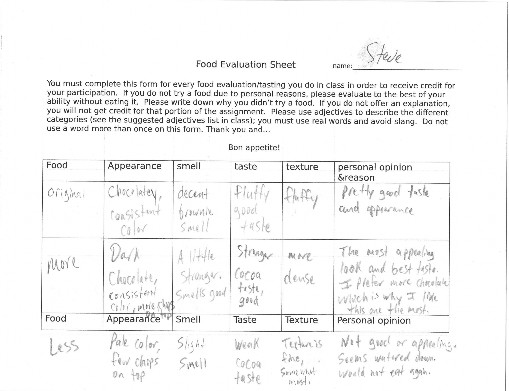 Steve
Food Evaluation Sheet name:
You must complete this form for every food evaluation/tasting you do in class in order to receive credit for
your participation. If you do not try a food due to personal reasons, please evaluate to the best of your
ability without eating it. Please write down why you didn't try a food. If you do not offer an explanation,
you will not get credit for that portion of the assignment. Please use adjectives to describe the different
categories (see the suggested adjectives list in class); you must use real words and avoid slang. Do not
use a word more than once on this form. Thank you and...
Bon appetite!
Food
Appearance
smell
taste
texture
personal opinion
&reason
Original
Chocolatey,
consistent
color
decent
brownie
smell
fluffy
good
taste
fluffy
Pretty good taste
and appearance
More
Dark
Chocolate,
consistent
color, more chips
on top
A little
Stronger.
Smells good
Stronger
Cocoa
taste,
good
more
dense
The most appealing
look and best taste.
I prefer more chocolate
which is why I like
this one the most.
Food
Appearance
Smell
Taste
Texture
Personal opinion
Less
Pale color,
few chips
on top
Slight
Smell
Weak
Cocoa
taste
Texture is
fine,
Somewhat
moist.
Not good or appealing.
Seems watered down.
Would not eat again.